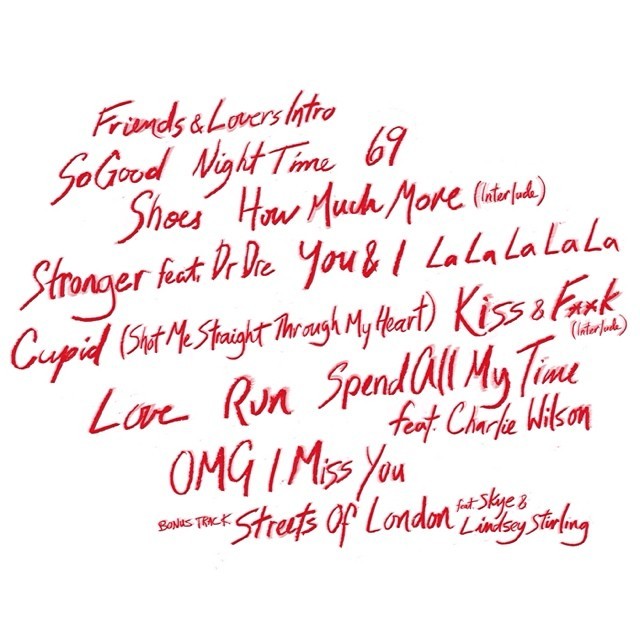 Friends & Lovers Intro
So Good Night Time 69
Shoes How Much More (Interlude)
Stronger feat. Dr Dre You & I La La La La La
Cupid (Shot Me Straight Through My Heart) Kiss & F**k (Interlude)
Love Run Spend All My Time
feat. Charlie Wilson
OMG I Miss You
BONUS TRACK Streets Of London feat. Skye & Lindsey Stirling